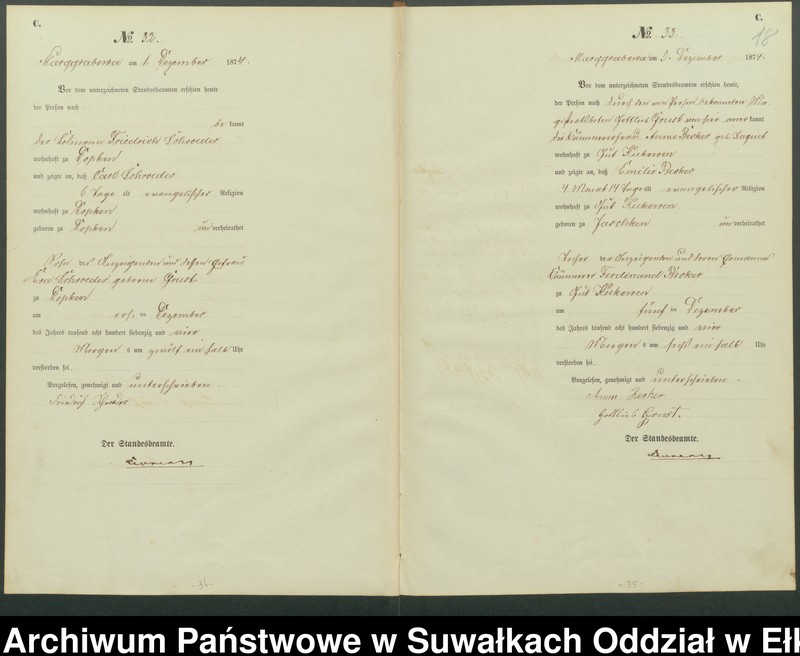 C.
№ 32.
Marggrabowa am 1. Dezember 1874.
Vor dem unterzeichneten Standesbeamten erschien heute
der Person nach
be kannt
der Friedrich Schroeder
wohnhaft zu
und zeigte an, daß Carl Schroeder
6 Tage alt evangelischer Religion
wohnhaft zu
geboren zu unverheirathet
Sohn des Anzeigenden und dessen Ehefrau
Schroeder geborene
zu
am ersten Dezember
des Jahres tausend acht hundert siebenzig und vier
Morgens um zwölf ein halb Uhr
verstorben sei.
Vorgelesen, genehmigt und unterschrieben.
Friedrich Schroeder
Der Standesbeamte.
-34-
C.
18
№ 33.
Marggrabowa am 5. Dezember 1874.
Vor dem unterzeichneten Standesbeamten erschien heute,
der Person nach durch den von Person bekannten
Gottlieb aner kannt
die Anna Becker geb.
wohnhaft zu Gut
und zeigte an, daß Emilie Becker
4 Monat 14 Tage alt evangelischer Religion
wohnhaft zu Gut
geboren zu Jaschken unverheirathet
Tochter der Anzeigenden und deren Ehemannes
Kämmerer Ferdinand Becker
zu Gut
am fünf ten Dezember
des Jahres tausend acht hundert siebenzig und vier
Morgens um sechs ein halb Uhr
verstorben sei.
Vorgelesen, genehmigt und unterschrieben.
Anna Becker
Gottlieb
Der Standesbeamte.
-35-
Archiwum Państwowe w Suwałkach Oddział w Ełk